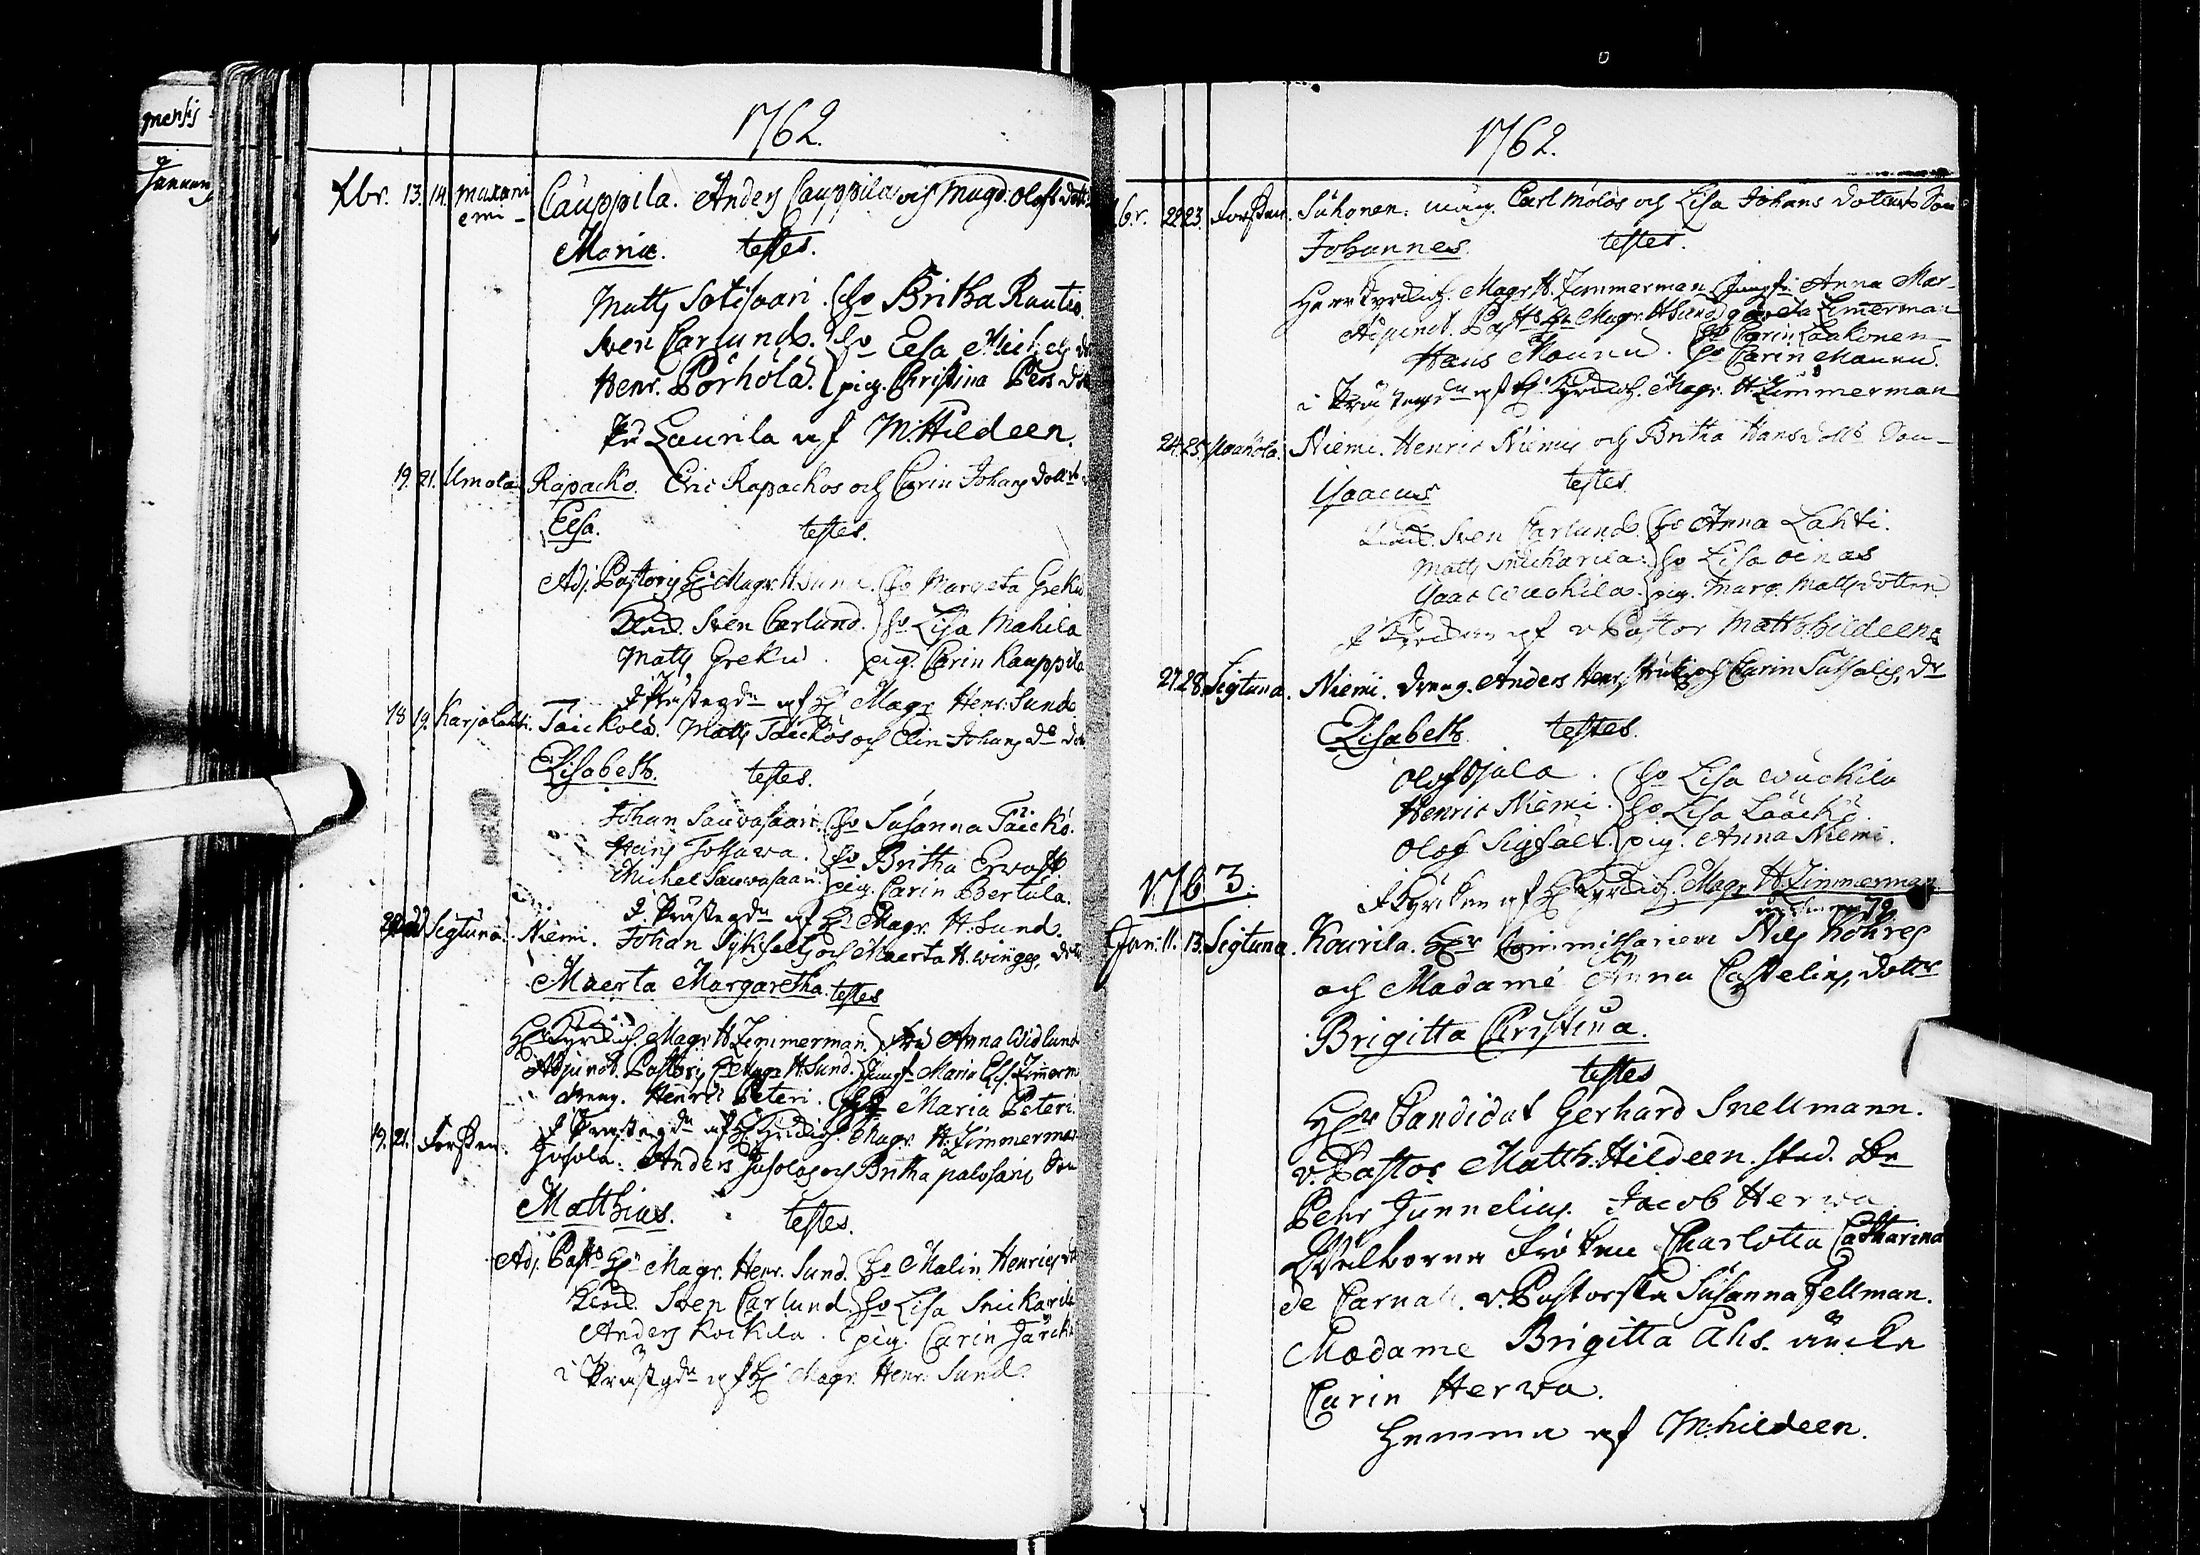 menſis
Januarij
1762.
Xbr. 13. 14. Maxani
emi-
Cauppila. Anders Cauppilas och Magd. Olofs dott.
Maria. testes.
Matts Sotisaari. Ho Britha Rautio.
Sven Carlund. Ho Elsa Michels d
Henr. Pörhölä. pig. Christina Pers dot
På Laurila af M: Hildeen.
19. 21. Umola. Rapacko. Eric Rapackos och Carin Johans dott
Elsa. testes.
Adj. Pastoris Hr Magr. H. Sund. Ho Margeta Greku
Stud. Sven Carlund. Ho Lisa Mahila
Matts Greku. pig. Carin Kauppila
I Prästegdn af Hr Magr. Henr. Sund
18 19. Karjalahti. Täickölä. Matts Täickös och Elin Johans do
Elisabeth. testes.
Johan Sauvasaari. Ho Susanna Täickö.
Hans Tossawa. Ho Britha Erwast.
Michel Sauvasaari. pig. Carin Bertula.
I Prästegdn af Hr Magr. H. Sund.
Sigtuna. Niemi. Johan Sykfelts och Maerta H. winges, dott
Maerta Margaretha. testes
Hr Kyrckioh. Magr H Zimmerman. Fru Anna Widlund
Adjunct. Pastoris Hr Magr H. Sund. Jungf. Maria Elis. Zimerm
dreng. Henric Peteri. Maria Peteri.
I Prästegdn af Hr Kyrckioh. Magr. H. Zimmerman
19. 21. Forssen. Jusola. Anders Jusolas och Britha palosaari Son
Matthias. testes.
Adj. Past. Hr Magr. Henr. Sund. Ho Malin Henrics dt
Stud. Sven Carlund. Ho Lisa Snickarila
Anders Kockila. pig. Carin Järckö
i Prästgdn af Hr Magr. Henr. Sund.
1762.
Xbr. 22 23. Forssen. Suhonen. Carl Molös och Lisa Johans dotters Son
Johannes. testes.
Herr Kyrckioh. Magr. H. Zimmerman Jungf. Anna Mar-
Adjunct. Past. Hr Magr. H Sund gareta Zimerman
Ho Carin Laakonen
Hans Maunu. Ho Carin Maunu.
i Prästegdn af Hr Kyrckioh. Magr. H. Zimmerman
24. 25. Niemi. Henric Niemis och Britha Hans dotts Son-
Isaacus testes.
Stud. Sven Carlund. Ho Anna Lahti.
Matts Snickarila. Ho Lisa oinas
Isaac Wackila. pig. Marg. Mattsdotter
I Kyrckan af v. Pastor Matth. hildeen.
27. 28. Sigtuna. Niemi. dreng. Anders och Carin dr
Elisabeth. testes.
Olof Ojala. Ho Lisa Wackila
Henric Niemi. Ho Lisa Lääckö.
Olof Sigfält. pig. Anna Niemi.
I Kyrckan af Hr Kyrckioh. Magr. H. Zimmerman
1763.
Jan: 11. 13. Sigtuna. Kourila. Hr Commissarien Nils
och Madame Anna Castelins, dottr
Brigitta Christina.
testes
Hr Candidat Gerhard Snellmann.
v. Pastor Matth. Hildeen. stud. Hr
Pehr Junnelius. Jacob Herva
Wälborna Fröken Charlotta Catharina
de Carnall. v. Pastorska Susanna Fellman.
Madame Brigitta Ahs. äncka
Carin Herva.
Hemma af M: hildeen.